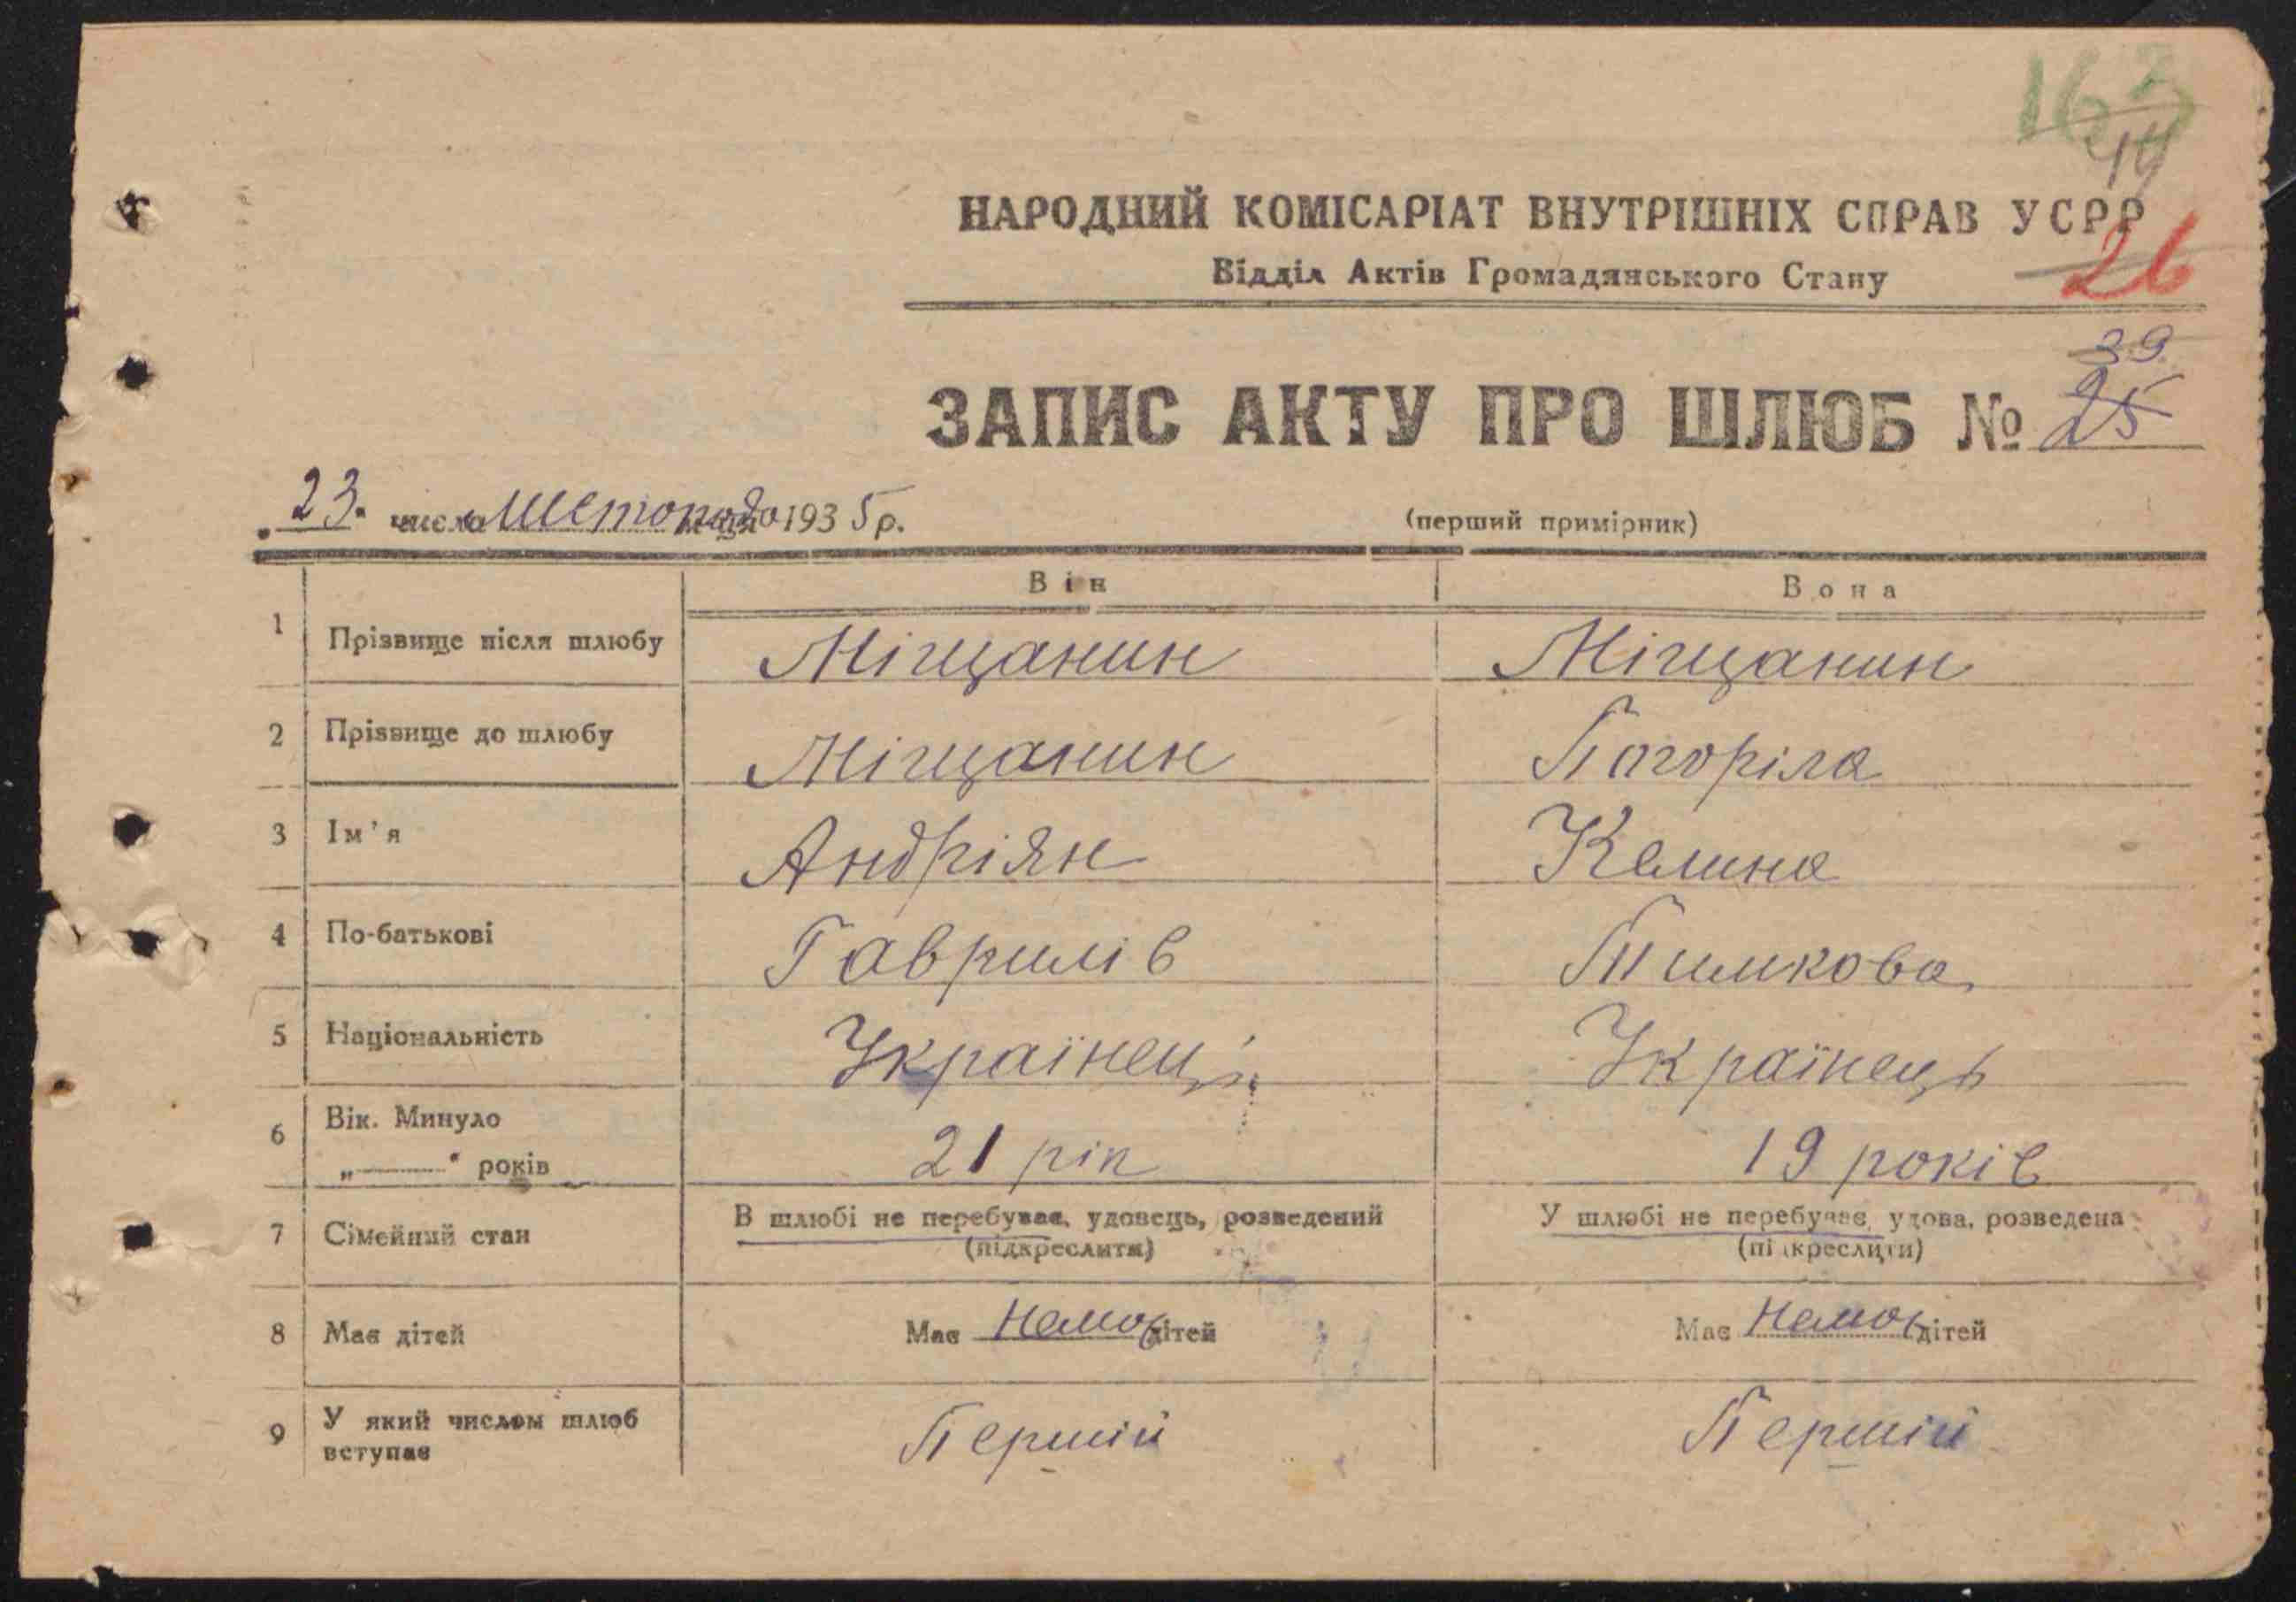 163
44
НАРОДНИЙ КОМІСАРІАТ ВНУТРІШНІХ СПРАВ УСРР
Відділ Актів Громадянського Стану
26
39
ЗАПИС АКТУ ПРО ШЛЮБ № 25
23. числа Листопада 1935 р.
(перший примірник)
Він Вона
1 Прізвище після шлюбу Міщанин Міщанин
2 Прізвище до шлюбу Міщанин Погоріла
3 Ім'я Андріян Калина
4 По-батькові Гаврилів Тимкова
5 Національність Українець Українець
6 Вік. Минуло
„———" років 21 рік 19 років
7 Сімейний стан В шлюбі не перебуває, удовець, розведений У шлюбі не перебуває, удова, розведена
(підкреслити) (підкреслити)
8 Має дітей Має Немає дітей Має Немає дітей
9 У який числом шлюб
вступає Першій Першій